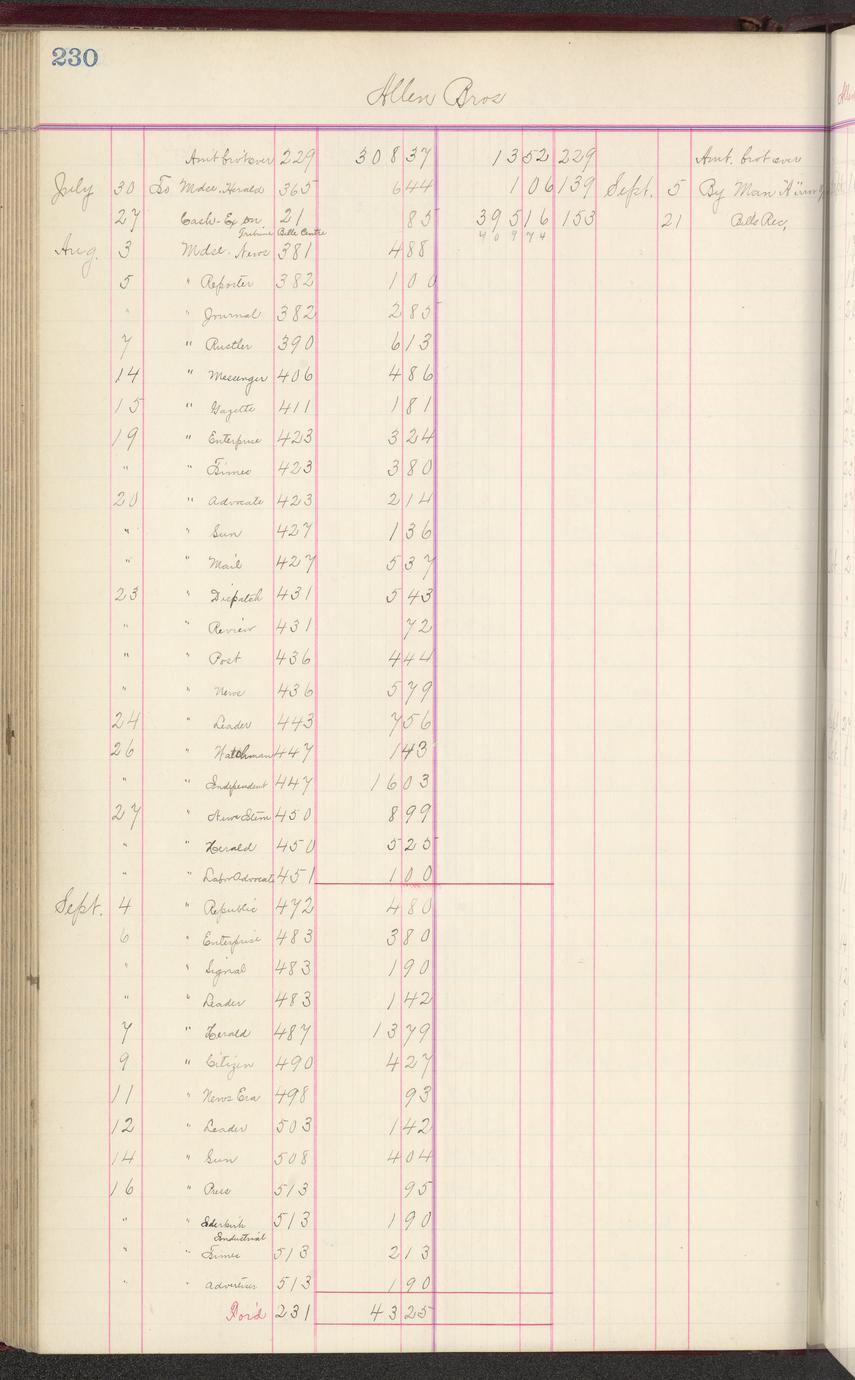 230
Allen Bros
Amt brot over 229 308 37 13 52 229 Amt. brot over
July 30 To Mdse. Herald 365 6 44 1 06 139 Sept. 5 By Man
27 Cash-Ex on 21 85 395 16 153 21 Bills Rec,
Tribune Belle Centre 409 74
Aug. 3 Mdse. News 381 4 88
5 " Reporter 382 1 00
" " Journal 382 2 85
7 " Rustler 390 6 13
14 " Messenger 406 4 86
15 " Gazette 411 1 81
19 " Enterprise 423 3 24
" " Times 423 3 80
20 " Advocate 423 2 14
" " Sun 427 1 36
" " Mail 427 5 37
23 " Dispatch 431 5 43
" " Review 431 72
" " Post 436 4 44
" " News 436 5 79
24 " Leader 443 7 56
26 " Watchman 447 1 43
" " Independent 447 16 03
27 " News Item 450 8 99
" " Herald 450 5 25
" " Labor Advocate 451 1 00
Sept. 4 " Republic 472 4 80
6 " Enterprise 483 3 80
" " Signal 483 1 90
" " Leader 483 1 42
7 " Herald 487 13 79
9 " Citizen 490 4 27
11 " News Era 498 93
12 " Leader 503 1 42
14 " Sun 508 4 04
16 " Press 513 95
" " 513 1 90
Industrial
" " Times 513 2 13
" " Advertiser 513 1 90
For'd 231 43 25